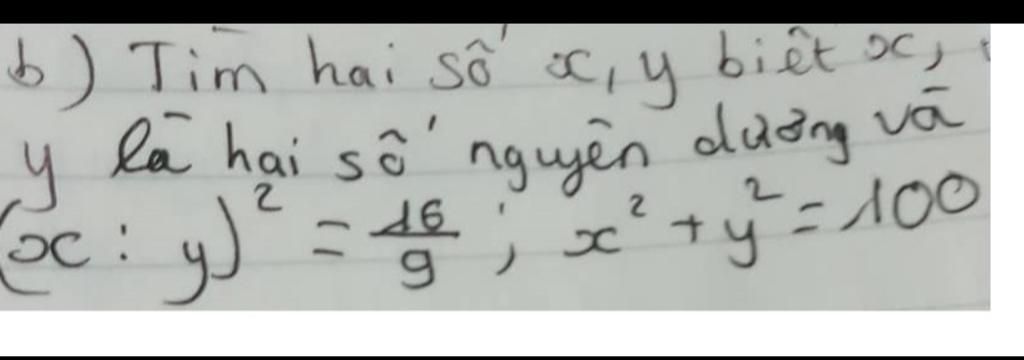 b) Tìm hai số x, y biết x,
y là hai số nguyên dương và
(x : y)² = 16/9 ; x² + y² = 100